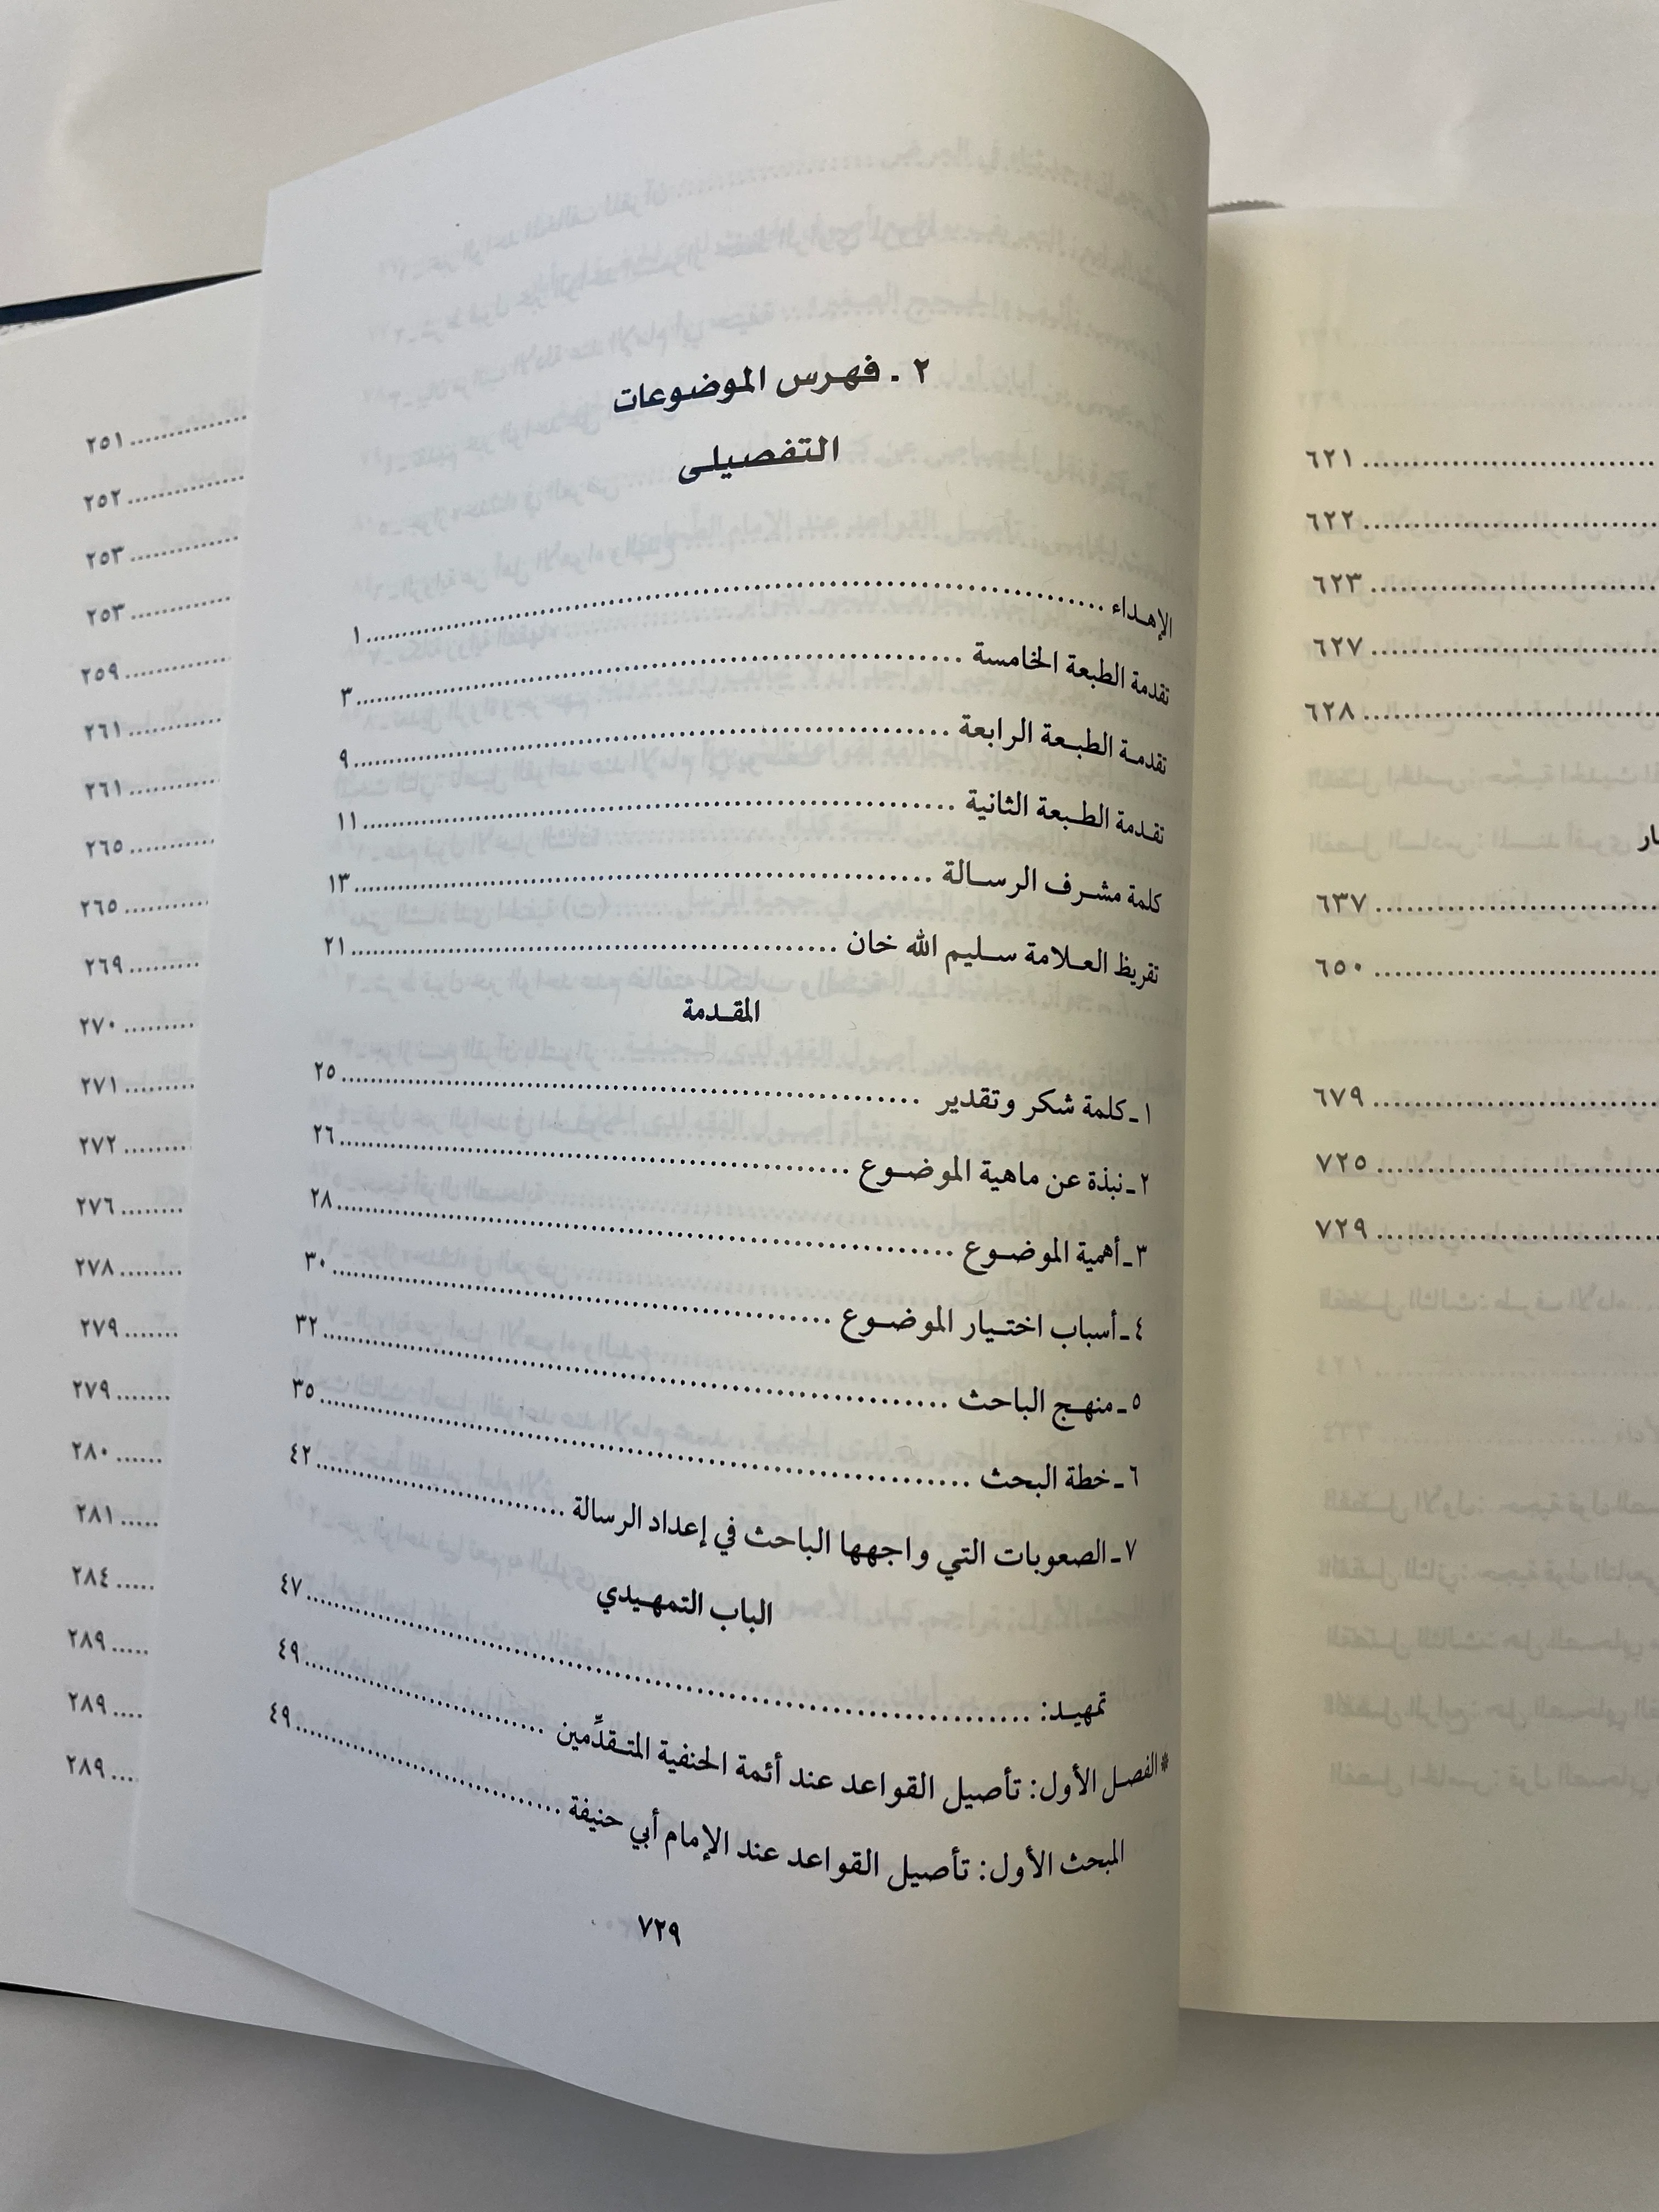 ٢ ـ فهرس الموضوعات
التفصيلي
الإهداء ........ ١
تقدمة الطبعة الخامسة ........ ٣
تقدمة الطبعة الرابعة ........ ٩
تقدمة الطبعة الثانية ........ ١١
كلمة مشرف الرسالة ........ ١٣
تقريظ العلامة سليم الله خان ........ ٢١
المقدمة
١ ـ كلمة شكر وتقدير ........ ٢٥
٢ ـ نبذة عن ماهية الموضوع ........ ٢٦
٣ ـ أهمية الموضوع ........ ٢٨
٤ ـ أسباب اختيار الموضوع ........ ٣٠
٥ ـ منهج الباحث ........ ٣٢
٦ ـ خطة البحث ........ ٣٥
٧ ـ الصعوبات التي واجهها الباحث في إعداد الرسالة ........ ٤٢
الباب التمهيدي
تمهيد: ........ ٤٧
* الفصل الأول: تأصيل القواعد عند أئمة الحنفية المتقدِّمين ........ ٤٩
المبحث الأول: تأصيل القواعد عند الإمام أبي حنيفة ........ ٤٩
٧٢٩
........ ٦٢١
........ ٦٢٢
........ ٦٢٣
........ ٦٢٧
........ ٦٢٨
........ ٦٣٧
........ ٦٥٠
........ ٦٧٩
........ ٧٢٥
........ ٧٢٩
........ ٢٥١
........ ٢٥٢
........ ٢٥٣
........ ٢٥٣
........ ٢٥٩
........ ٢٦١
........ ٢٦١
........ ٢٦٥
........ ٢٦٥
........ ٢٦٩
........ ٢٧٠
........ ٢٧١
........ ٢٧٢
........ ٢٧٦
........ ٢٧٨
........ ٢٧٩
........ ٢٧٩
........ ٢٨٠
........ ٢٨١
........ ٢٨٤
........ ٢٨٩
........ ٢٨٩
........ ٢٨٩